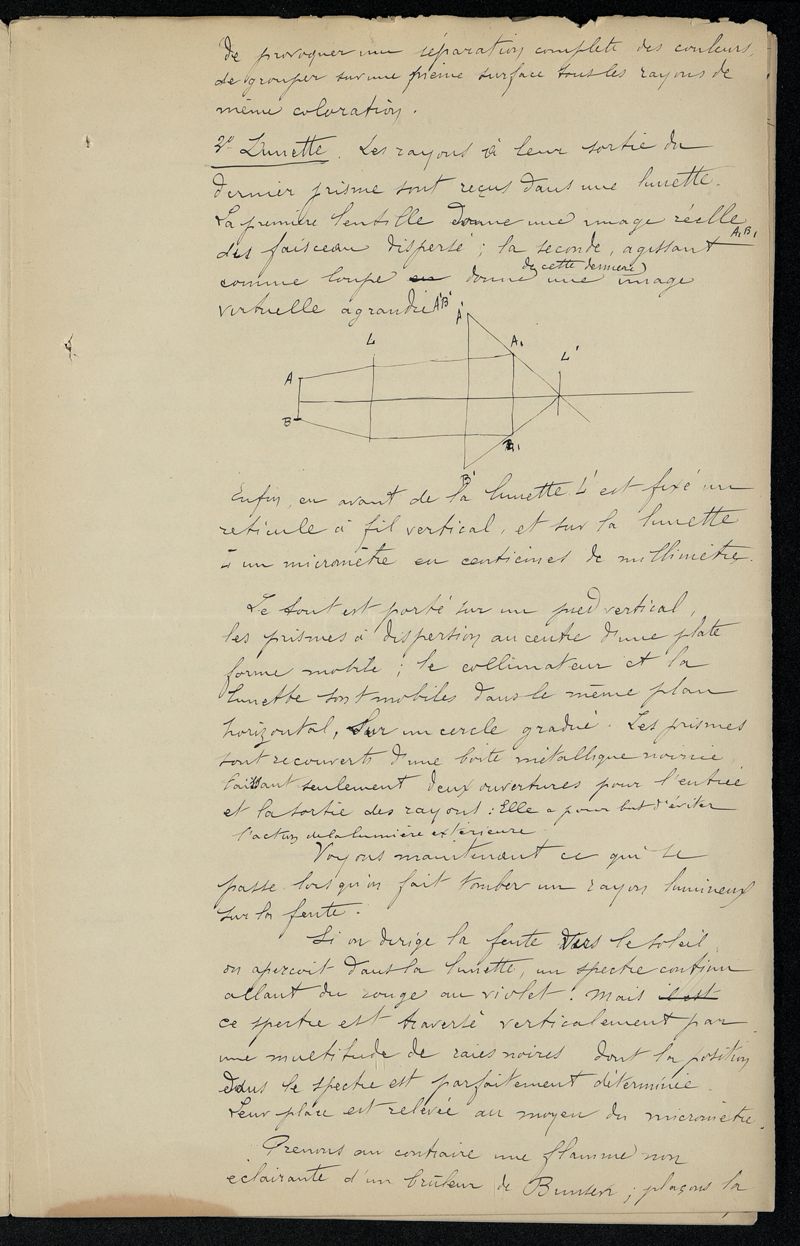 de provoquer une séparation complète des couleurs,
de grouper sur une même surface tous les rayons de
même coloration.
2° Lunette. Les rayons à leur sortie du
dernier prisme sont reçus dans une lunette.
La première lentille donne une image réelle
A₁B₁
du faisceau dispersé ; la seconde, agissant
de cette dernière
comme loupe en donne une image
virtuelle agrandie A'B'
A'
L
A₁
L'
A
B
B₁
B'
Enfin, en avant de la lunette L' est fixé un
reticule à fil vertical, et sur la lunette
L un micromètre en centièmes de millimètre.
Le tout est porté sur un pied vertical,
les prismes à dispersion au centre d'une plate
forme mobile ; le collimateur et la
lunette sont mobiles dans le même plan
horizontal, sur un cercle gradué. Les prismes
sont recouverts d'une boite métallique noircie,
laissant seulement deux ouvertures pour l'entrée
et la sortie des rayons : Elle a pour but d'éviter
l'action de la lumière extérieure
Voyons maintenant ce qui se
passe lorsqu'on fait tomber un rayon lumineux
sur la fente.
Si on dirige la fente vers le soleil,
on aperçoit dans la lunette, un spectre continu
allant du rouge au violet. Mais il est
ce spectre est traversé verticalement par
une multitude de raies noires dont la position
dans le spectre est parfaitement déterminée.
Leur place est relevée au moyen du micromètre.
Prenons au contraire une flamme non
eclairante d'un brûleur de Bunsen ; plaçons la